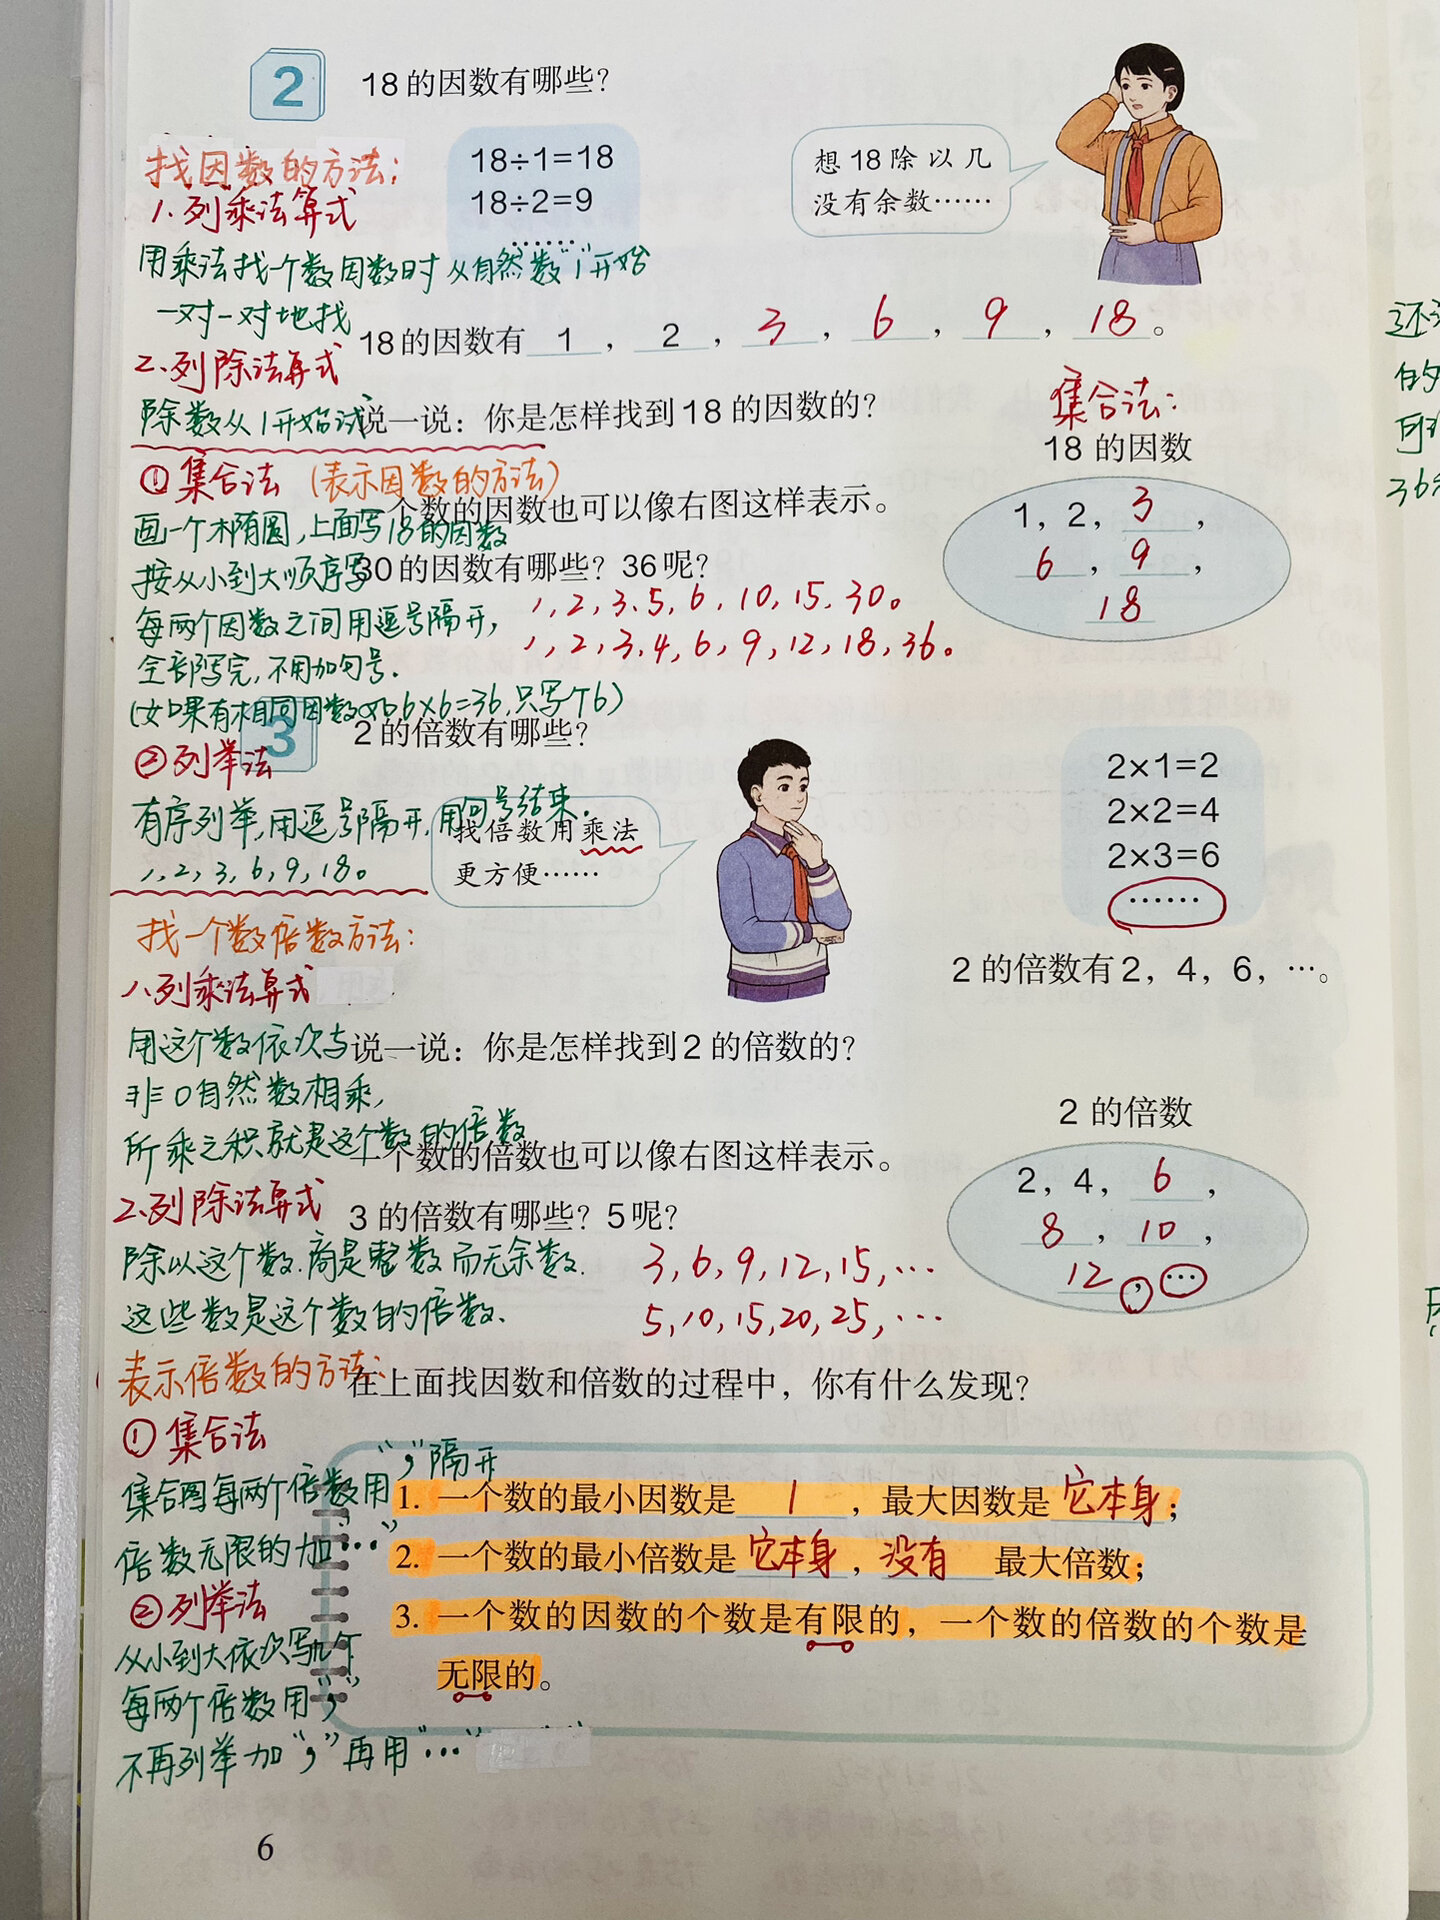 2
18的因数有哪些？
找因数的方法：
18÷1=18
18÷2=9
……
想18除以几
没有余数……
1、列乘法算式
用乘法找一个数因数时从自然数“1”开始
一对一对地找
18的因数有 1 ， 2 ， 3 ， 6 ， 9 ， 18 。
2、列除法算式
除数从1开始试
说一说：你是怎样找到18的因数的？
集合法：
18 的因数
1，2，3，
6，9，
18
①集合法（表示因数的方法）
一个数的因数也可以像右图这样表示。
画一个椭圆，上面写18的因数
按从小到大顺序写
30的因数有哪些？36呢？
1，2，3、5，6，10，15、30。
1，2，3，4，6，9，12，18，36。
每两个因数之间用逗号隔开，
全部写完，不用加句号．
（如果有相同因数如6×6=36，只写个6）
3
2的倍数有哪些？
②列举法
有序列举，用逗号隔开，用句号结束．
1，2，3，6，9，18。
找倍数用乘法
更方便……
2×1=2
2×2=4
2×3=6
……
2 的倍数有2，4，6，…。
找一个数倍数方法：
1、列乘法算式
用这个数依次与
非0自然数相乘，
所乘之积就是这个数的倍数
说一说：你是怎样找到2 的倍数的？
一个数的倍数也可以像右图这样表示。
2 的倍数
2，4，6，
8，10，
12，…
2、列除法算式
除以这个数．商是整数而无余数．
这些数是这个数的倍数．
3 的倍数有哪些？5呢？
3，6，9，12，15，…
5，10，15，20，25，…
表示倍数的方法：
在上面找因数和倍数的过程中，你有什么发现？
①集合法
集合图每两个倍数用“，”隔开
倍数无限的加“…”
②列举法
从小到大依次写几个
每两个倍数用“，”
不再列举加“，”再用“…”
1. 一个数的最小因数是 1 ，最大因数是 它本身；
2. 一个数的最小倍数是 它本身，没有 最大倍数；
3. 一个数的因数的个数是有限的，一个数的倍数的个数是
无限的。
还
的
可
36
6